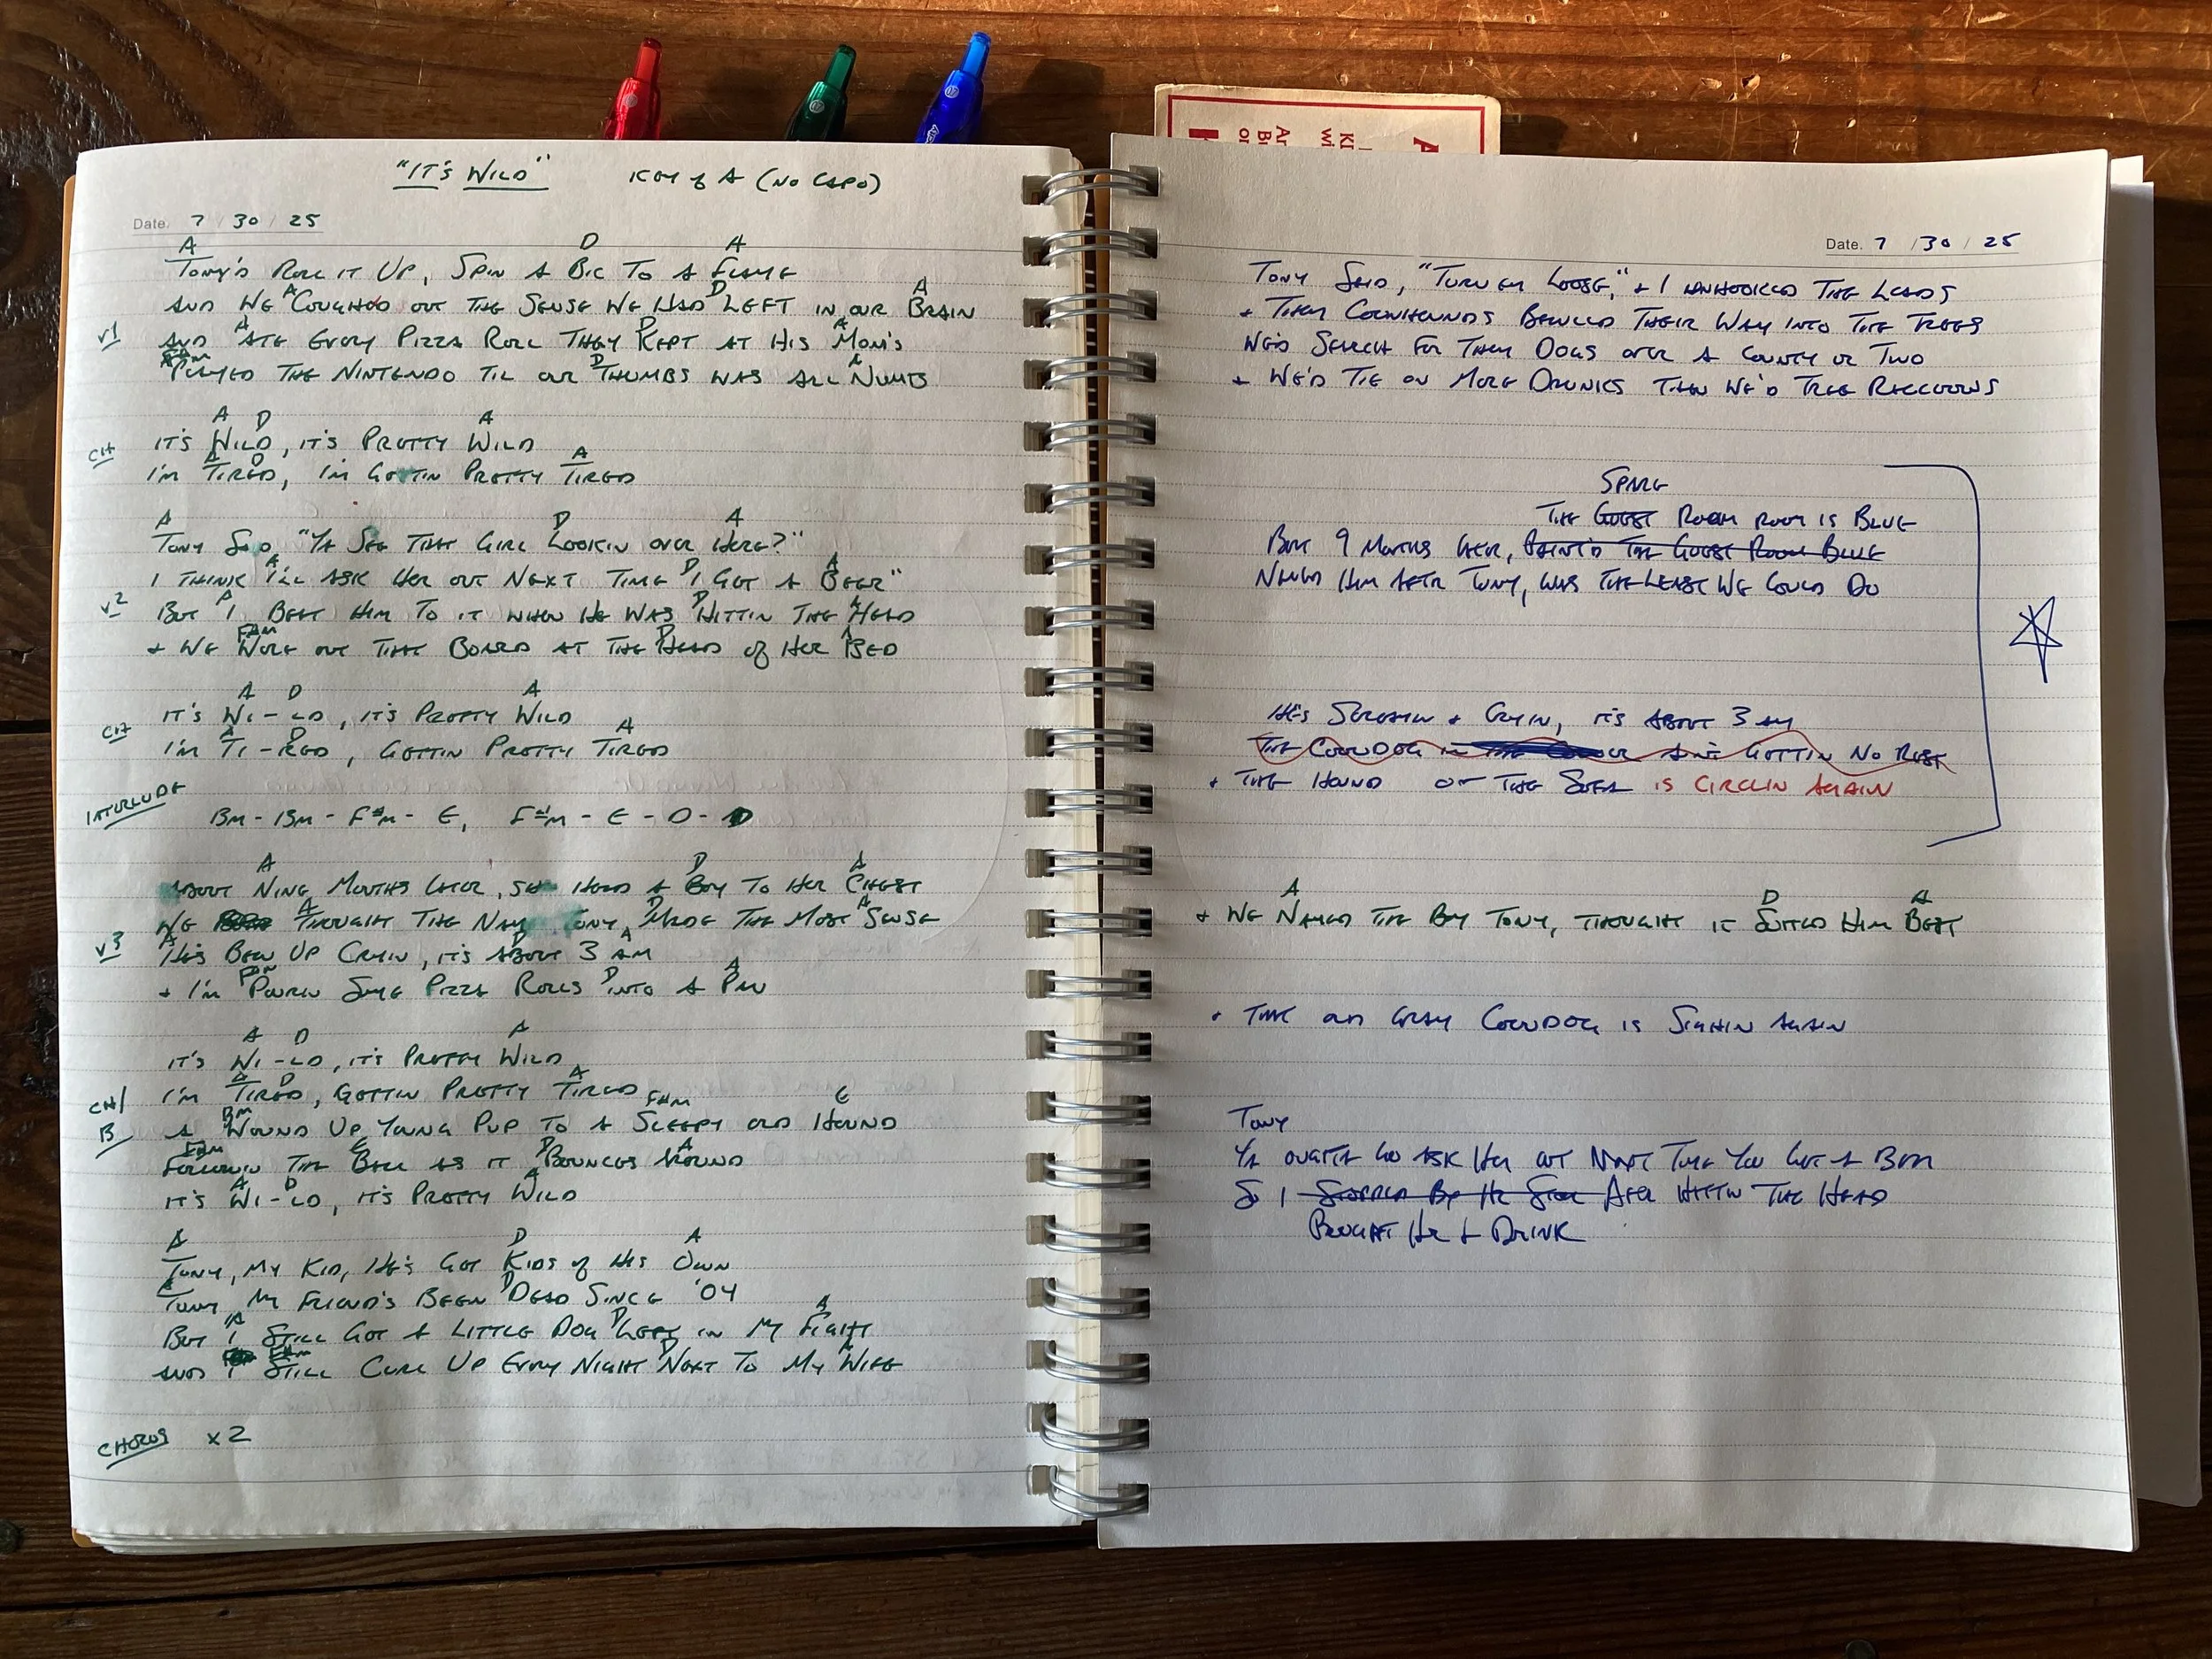 "IT'S WILD" KEY of A (NO CAPO)
Date. 7 / 30 / 25
A D A
TONY'S ROLL IT UP, SPIN A BIC TO A FLAME
A D A
AND WE COUGHED OUT THE SENSE WE HAD LEFT IN OUR BRAIN
A D A
V1 AND ATE EVERY PIZZA ROLL THEY KEPT AT HIS MOM'S
F#m D A
PLAYED THE NINTENDO TIL OUR THUMBS WAS ALL NUMB
A D A
CH IT'S WILD, IT'S PRETTY WILD
A D A
I'M TIRED, I'M GETTIN PRETTY TIRED
A D A
TONY SAID, "YA SEE THAT GIRL LOOKIN OVER HERE?"
A D A
I THINK I'LL ASK HER OUT NEXT TIME I GET A BEER"
A D A
V2 BUT I BEAT HIM TO IT WHEN HE WAS HITTIN THE HEAD
F#m D A
+ WE WORE OUT THAT BOARD AT THE HEAD of HER BED
A D A
CH IT'S WI-LD, IT'S PRETTY WILD
A D A
I'M TI-RED, GETTIN PRETTY TIRED
INTERLUDE
Bm - Bm - F#m - E, F#m - E - D - D
A D A
ABOUT NINE MONTHS LATER, SHE HELD A BOY TO HER CHEST
A D A
WE THOUGHT THE NAME TONY MADE THE MOST SENSE
A D A
V3 HE'S BEEN UP CRYIN, IT'S ABOUT 3 AM
F#m D A
+ I'M POURIN SOME PIZZA ROLLS INTO A PAN
A D A
IT'S WI-LD, IT'S PRETTY WILD
A D A
CH/ I'M TIRED, GETTIN PRETTY TIRED
Bm F#m E
B A WOUND UP YOUNG PUP TO A SLEEPY OLD HOUND
F#m E D A
FOLLOWIN THE BALL AS IT BOUNCES AROUND
A D A
IT'S WI-LD, IT'S PRETTY WILD
A D A
TONY, MY KID, HE'S GOT KIDS of HIS OWN
A D
TONY, MY FRIEND'S BEEN DEAD SINCE '04
A D A
BUT I STILL GOT A LITTLE DOG LEFT IN MY FIGHT
F#m D A
AND I STILL CURL UP EVERY NIGHT NEXT TO MY WIFE
CHORUS x2
Date. 7 / 30 / 25
TONY SAID, "TURN EM LOOSE," + I UNHOOKED THE LEADS
+ THEM COONHOUNDS BAWLED THEIR WAY INTO THE TREES
WE'D SEARCH FOR THEM DOGS OVER A COUNTY OR TWO
+ WE'D TIE ON MORE DRUNKS THAN WE'D TREE RACCOONS
SPARE
THE GUEST ROOM ROOM IS BLUE
BOUT 9 MONTHS LATER, PAINT'D THE GUEST ROOM BLUE
NAMED HIM AFTR TONY, WAS THE LEAST WE COULD DO
HE'S SCREAMIN + CRYIN, IT'S ABOUT 3 AM
THE COONDOG AIN'T GETTIN NO REST
+ THE HOUND ON THE SOFA IS CIRCLIN AGAIN
A D A
+ WE NAMED THE BOY TONY, THOUGHT IT SUITED HIM BEST
+ THAT OLD GRAY COONDOG IS SIGHIN AGAIN
TONY
YA OUGHTA GO ASK HER OUT NEXT TIME YOU GET A BEER
SO I STOPPED BY HER STOOL AFTER HITTIN THE HEAD
BOUGHT HER A DRINK